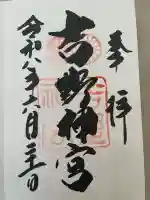 奉拝
吉野神宮
令和八年六月日